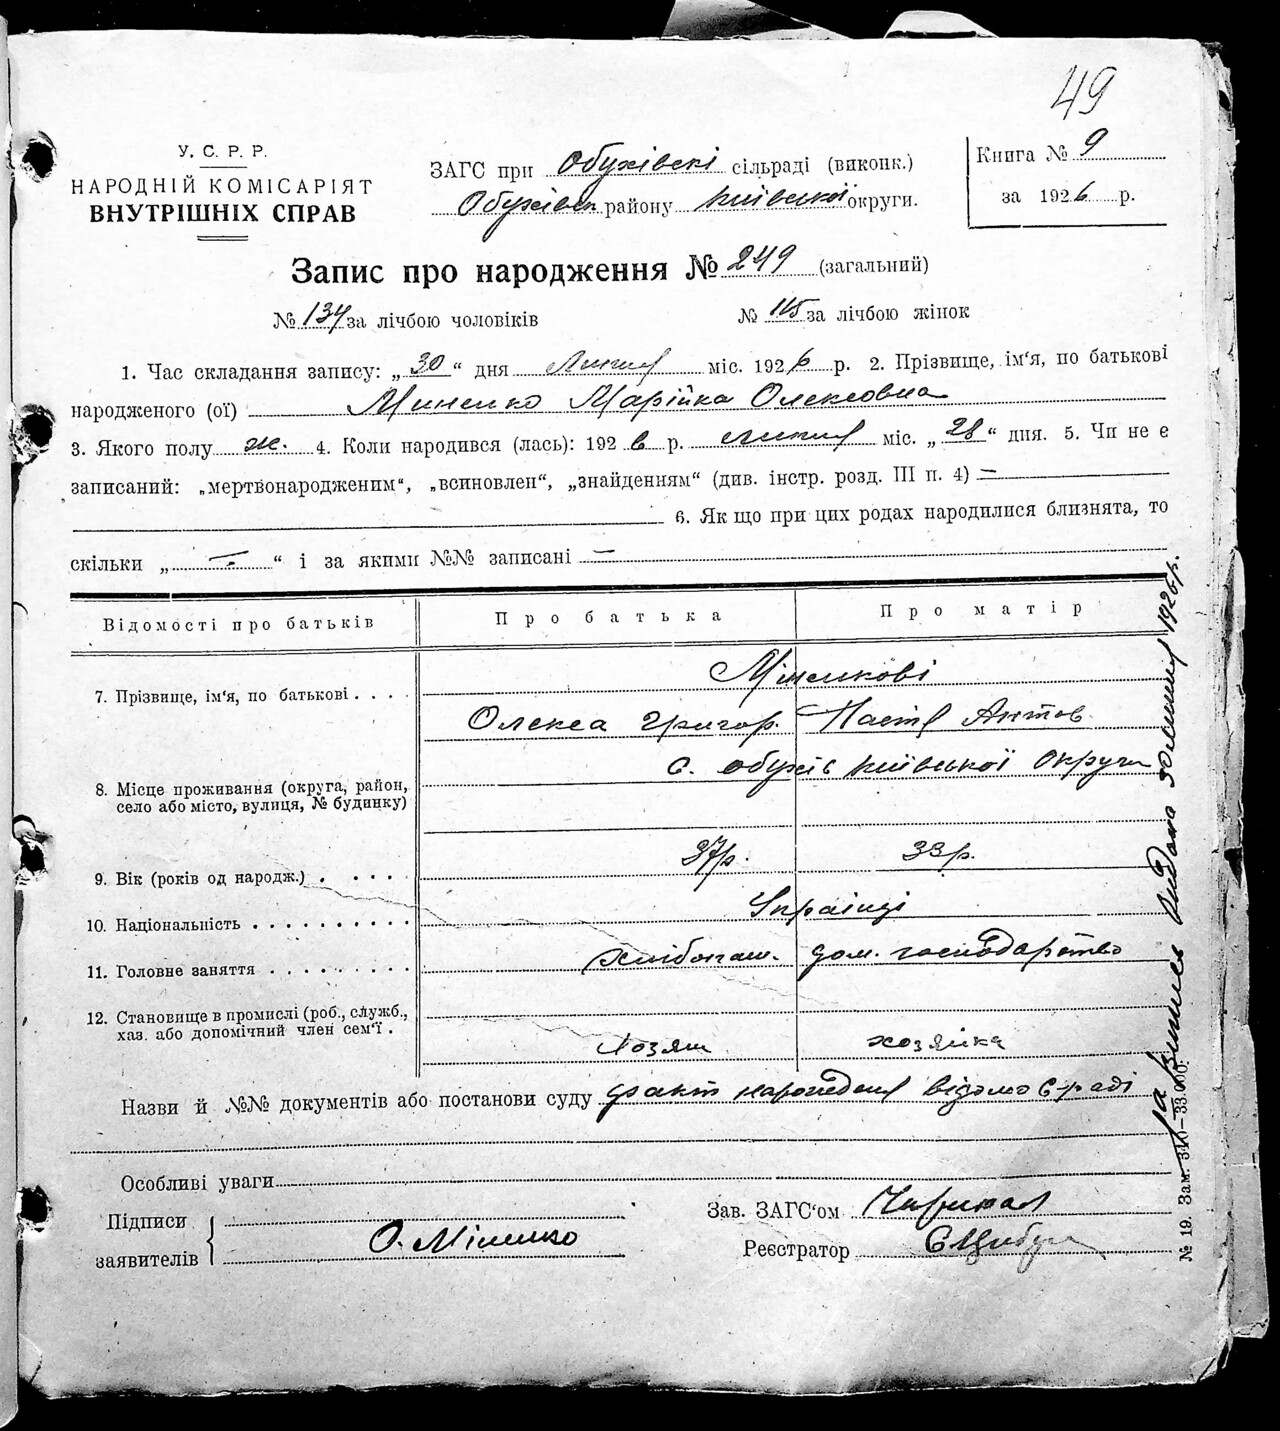 49
У. С. Р. Р.
НАРОДНІЙ КОМІСАРІЯТ
ВНУТРІШНІХ СПРАВ
ЗАГС при Обухівскі сільраді (виконк.)
Обухівск району Київської округи.
Книга № 9
за 1926 р.
Запис про народження № 249 (загальний)
№ 134 за лічбою чоловіків № 115 за лічбою жінок
1. Час складання запису: „30“ дня Липня міс. 1926 р. 2. Прізвище, ім‘я, по батькові
народженого (ої) Миненко Марійка Олексовна
3. Якого полу ж. 4. Коли народився (лась): 1926 р. липня міс. „28“ дня. 5. Чи не є
записаний: „мертвонародженим“, „всиновлен“, „знайденням“ (див. інстр. розд. III п. 4) —
6. Як що при цих родах народилися близнята, то
скільки „—“ і за якими №№ записані —
Відомості про батьків Про батька Про матір
7. Прізвище, ім‘я, по батькові . . . . Міненкові
Олекса Григор. Настя Антов
8. Місце проживання (округа, район, с. Обухів Київської Округи
село або місто, вулиця, № будинку)
9. Вік (років од народж.) . . . . . 37р. 33р.
10. Національність . . . . . . . . . Українці
11. Головне заняття . . . . . . . . хлібопаш. дом. господарство
12. Становище в промислі (роб., служб.,
хаз. або допомічний член сем‘ї . Хозяин хозяйка
Назви й №№ документів або постанови суду факт народження відомо С-раді
Особливі уваги
Підписи
заявителів О. Міненко
Зав. ЗАГС‘ом
Реєстратор Є Цибул
№ 19. Зам. 340—33.000.
Випись видана 30 липня 1926 р.